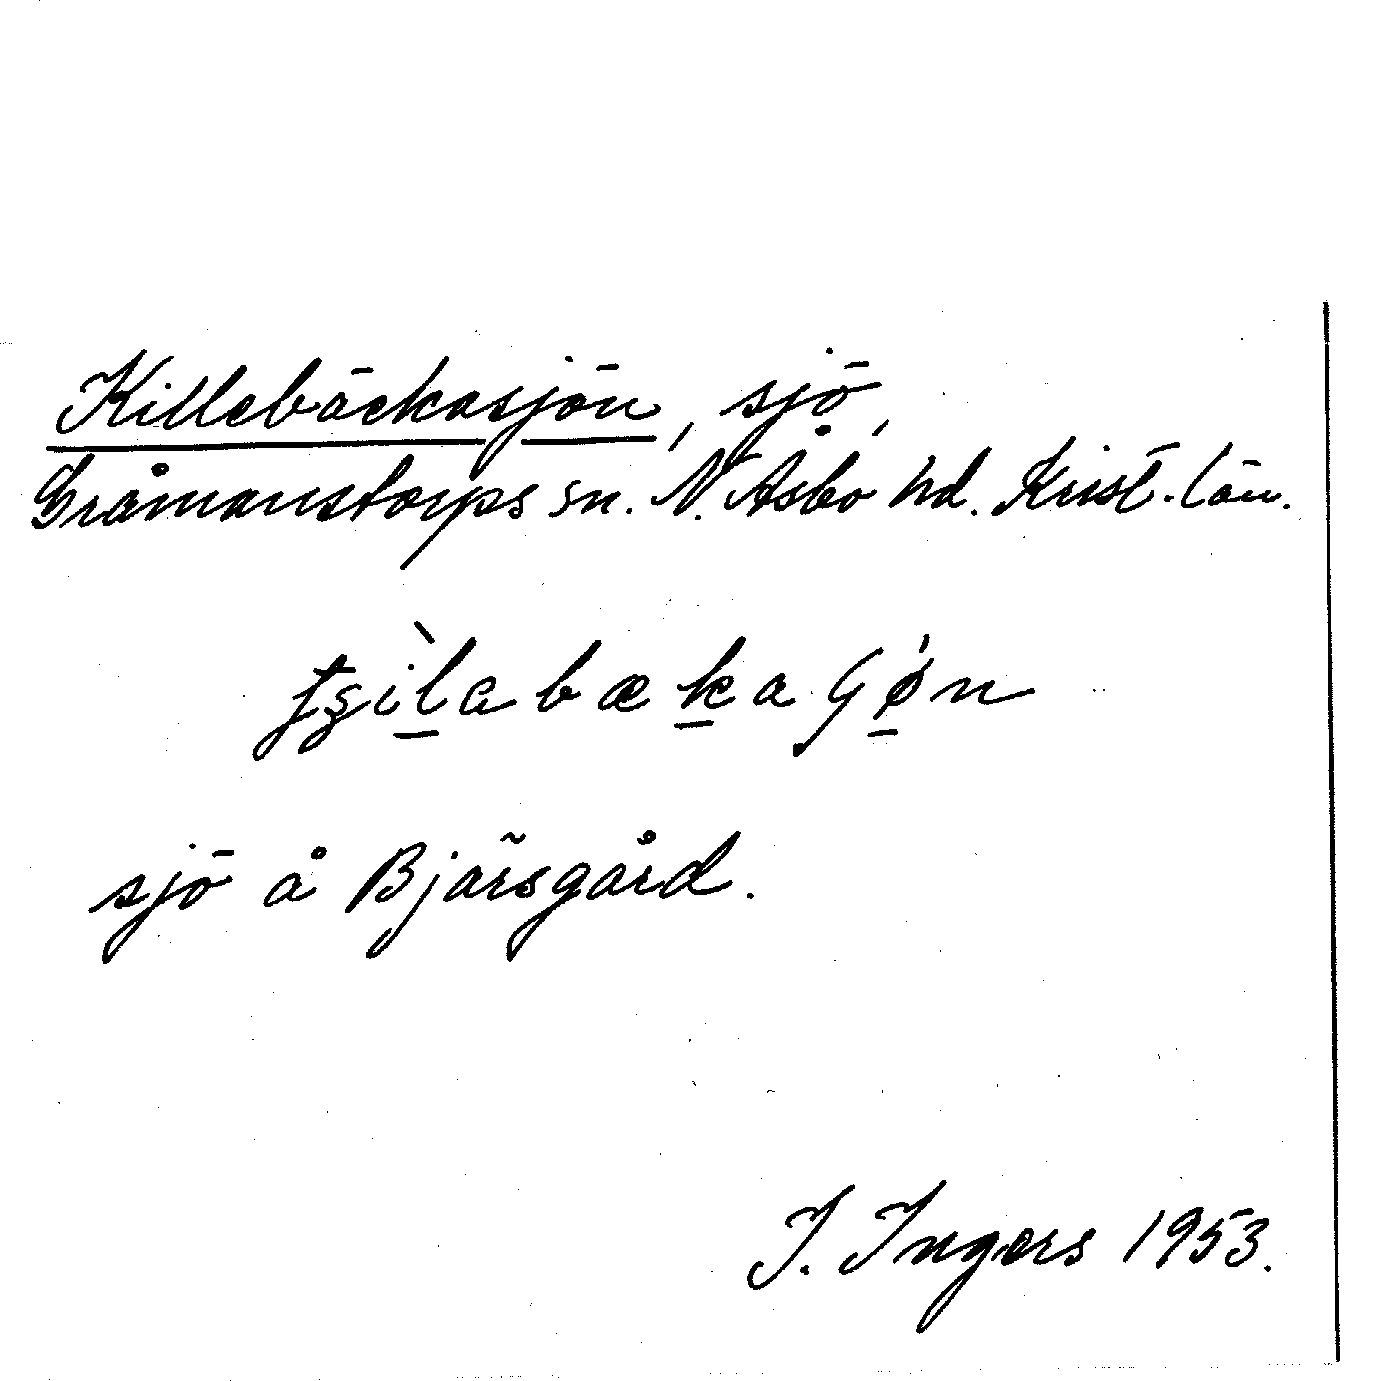 Killebäckasjön, sjö,
Gråmanstorps sn. N. Åsbo hd. Krist. län.
sjö å Bjärsgård.
I. Ingers 1953.